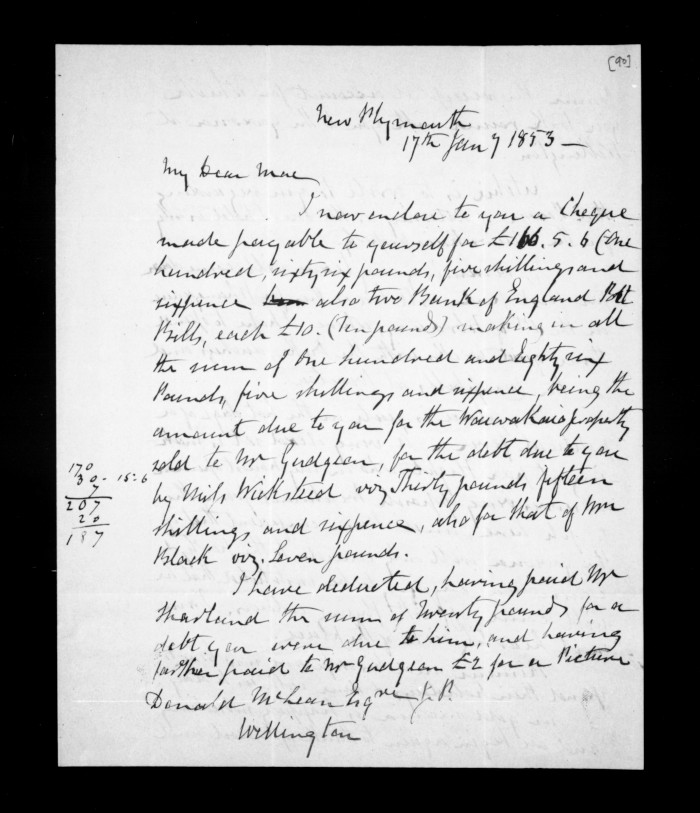 [90]
New Plymouth
17th Jany 1853 —
My Dear Mac
I now enclose to you a Cheque
made payable to yourself for £166.5.6 (One
hundred, sixty six pounds, five shillings and
sixpence also two Bank of England Post
Bills, each £10. (Ten pounds) making in all
the sum of One hundred and Eighty six
Pounds, five shillings and sixpence, being the
amount due to you for the Waiwakaio property
sold to Mr Gudgeon, for the debt due to you
by Mils Wicksteed viz, Thirty pounds fifteen
shillings and sixpence, also for that of Wm
Black viz. Seven pounds.
170
30 - 15:6
7
207
20
187
I have deducted, having paid Mr
the sum of Twenty pounds for a
debt you were due to him, and having
farther paid to Mr Gudgeon £2 for a Picture
Donald McLean Esqre J.P.
Wellington